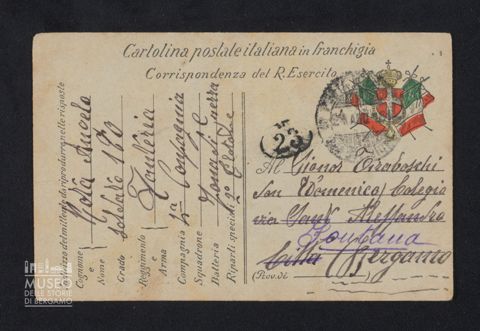 Cartolina postale italiana in franchigia
Corrispondenza del R. Esercito
Indirizzo del mittente da riprodurre nelle risposte
Cognome Rota Angelo
e
Nome
Grado Soldato 180
Reggimento Fanteria
Arma
Compagnia 1a Compagnia
Squadrone
Batteria Zona di guerra
Riparti speciali 2o
23
Al Signor Oraboschi
San Domenico
via Sant Alessandro
Fontana
Città Bergamo
(Prov. di
MUSEO
DELLE STORIE
DI BERGAMO